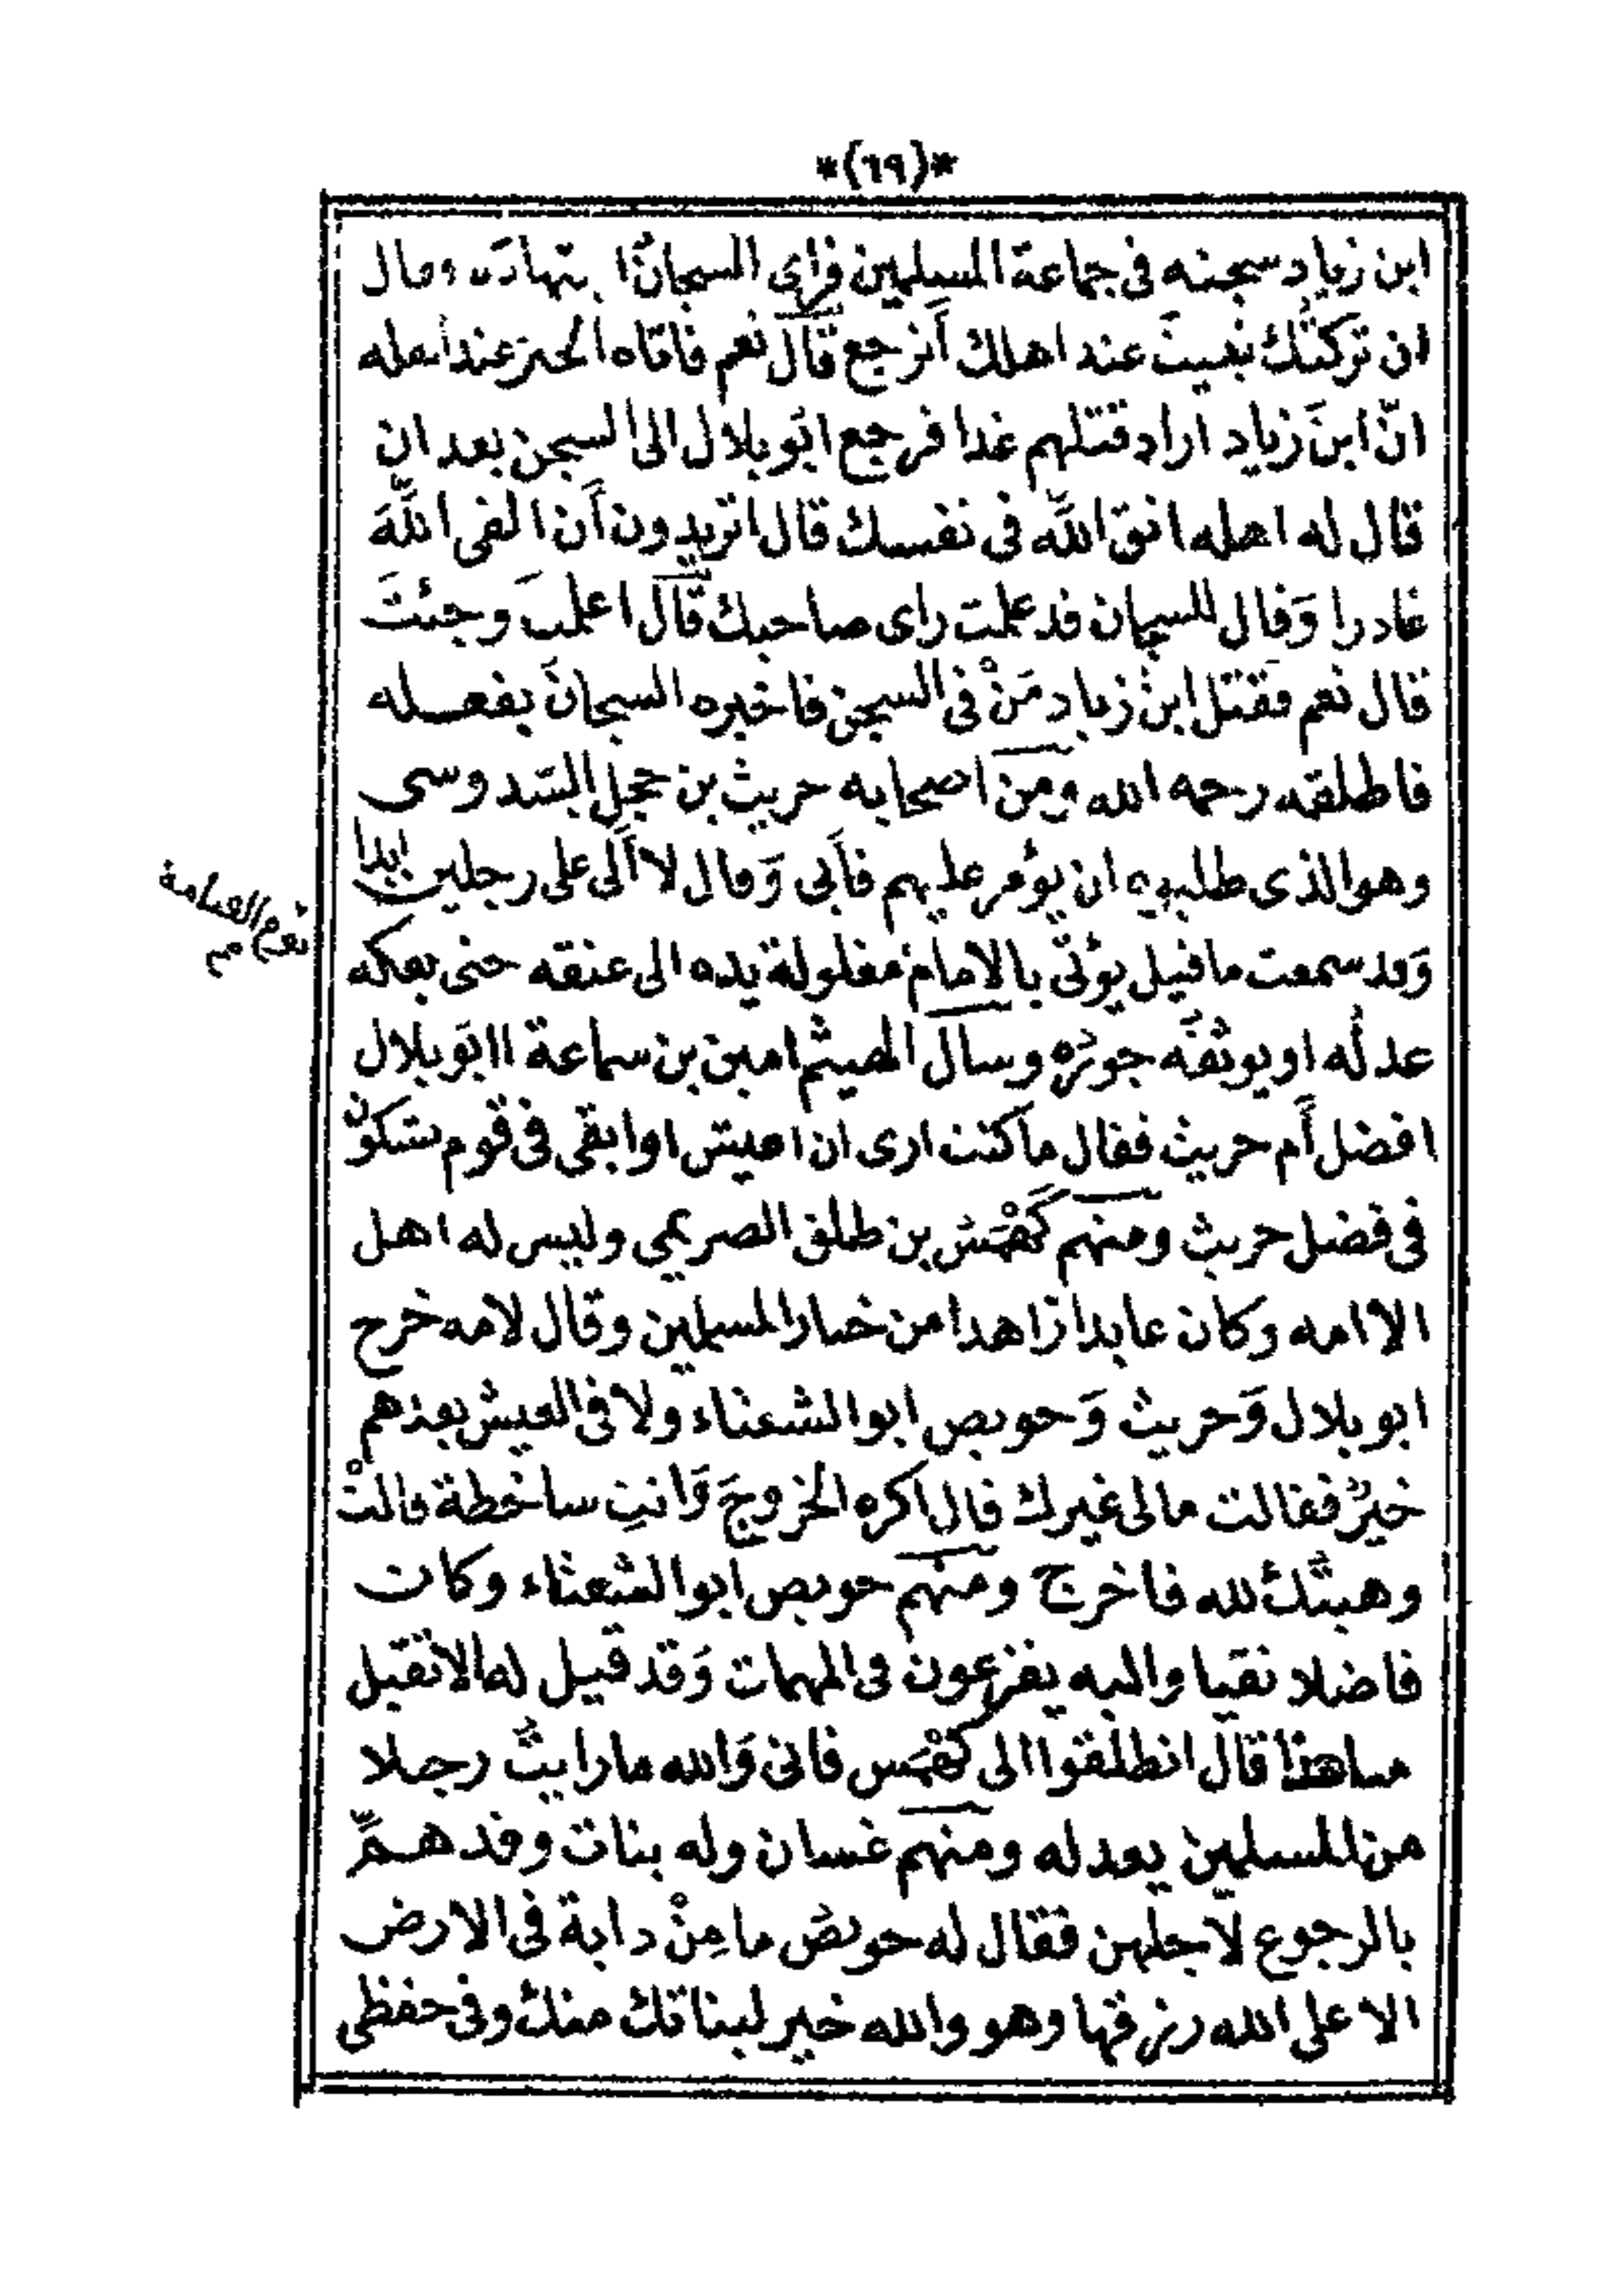 *(٦٩)*
ابن زياد سجنه فى جماعة المسلمين فراى السجانُ اجتهادَه وقال
ان تركتُك تبيتَ عند اهلك أترجع قال نعم فاتاه الخبر عند اهله
انّ ابنَ زياد اراد قتلهم غدا فرجع ابو بلال الى السجن بعد ان
قال له اهله اتق اللّه فى نفسك قال اتريدون أن القى اللّهَ
غادرا وَقال للسجان قد علمت راى صاحبك قال اعلمتَ وجئتَ
قال نعم فقتل ابنُ زياد مَنْ فى السجن فاخبره السجانَ بفعله
فاطلقه رحمه الله ومن اصحابه حريث بن حجل السَدوسى
وهو الذى طلبوه ان يؤمر عليهم فأبى وَقال لا ألى على رجلين ابدا
وَقد سمعت ما قيل يؤتى بالامام مغلولة يده الى عنقه حتى يفكه
يوم القيامة م
عدلُه او يوثقَه جورُه وسال الهيثم امين بن سماعة اابو بلال
افضل أم حريث فقال ما كنت ارى ان اعيش او ابقى فى قوم يشكونْ
فى فضل حريث ومنهم كَهْمَس بن طلق الصريمي وليس له اهل
الا امه وكان عابدا زاهدا من خيار المسلمين وقال لامه خرج
ابو بلال وَحريث وَحويص ابو الشعثاء ولا فى العيش بعدهم
خيرٌ فقالت مالى غيرك قال اكره الخروجَ وَانتِ ساخطة قالتْ
وهبتُك لله فاخرج ومنهم حويص ابو الشعثاء وكان
فاضلا تقيا واليه يفزعون فى المهمات وَقد قيل لها لا تقبل
مساهذا قال انطلقوا الى كَهْمَس فانى وَالله ما رايتُ رجلا
من المسلمين يعدله ومنهم غسان وله بنات وقد همَّ
بالرجوع لأجلهن فقال له حويصُ ما مِنْ دابة فى الارض
الا على الله رزقها وهو والله خير لبناتك منك وفى حفظى